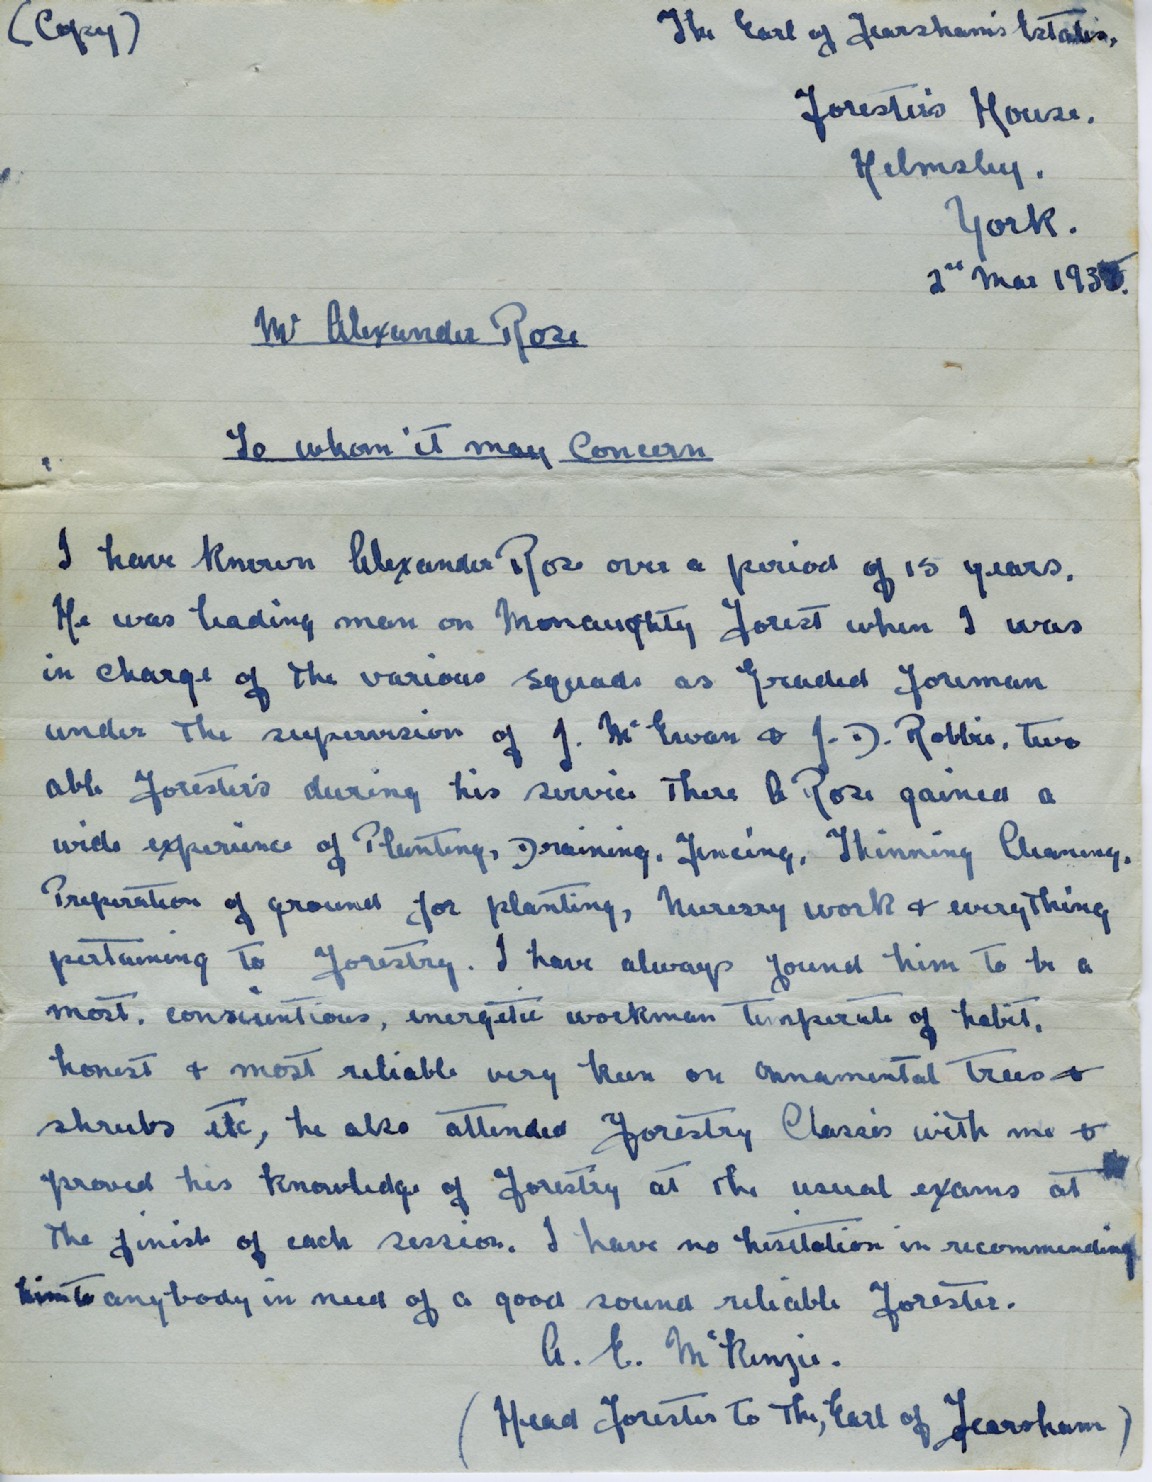 (Copy)
The Earl of Fearsham's Estates,
Forester's House.
Helmsley.
York.
2nd Mar 193
Mr Alexander Rose
To whom it may Concern
I have known Alexander Rose over a period of 15 years.
He was leading man on Monaughty Forest when I was
in charge of the various squads as Graded Foreman
under the supervision of J. McEwan & J. D. Robbie, two
able Forester's during his service there A Rose gained a
wide experience of Planting, Draining, Fencing, Thinning Cleaning,
Preperation of ground for planting, Nuresry work & everything
pertaining to Forestry. I have always found him to be a
most, conscientious, energetic workman temperate of habit,
honest & most reliable very keen on Onnamental trees &
shrubs etc, he also attended Forestry Classes with me &
proved his knowledge of Forestry at the usual exams at
the finish of each session. I have no hesitation in recommending
him to anybody in need of a good sound reliable Forester.
A. E. McKenzie.
(Head Forester to The, Earl of Fearsham)